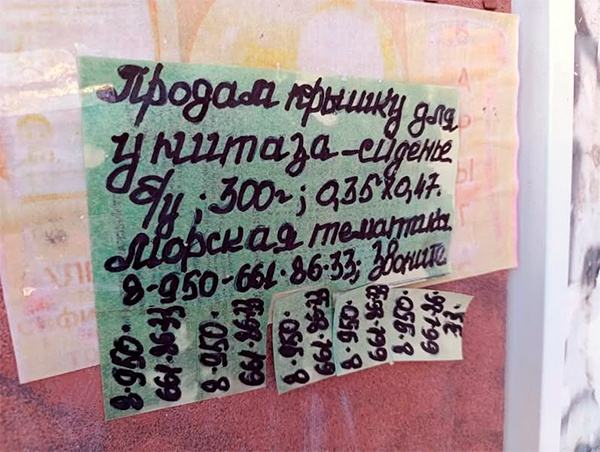 Продам крышку для
унитаза-сиденье
б/у; 300г; 0,35х0,47.
Морская тематика.
8-950-661-86-33; Звоните
8-950-
661-86-33
8-950-
661-86-33
8-950-
661-86-33
8-950
661-86-33
8-950-
661-86-
33.